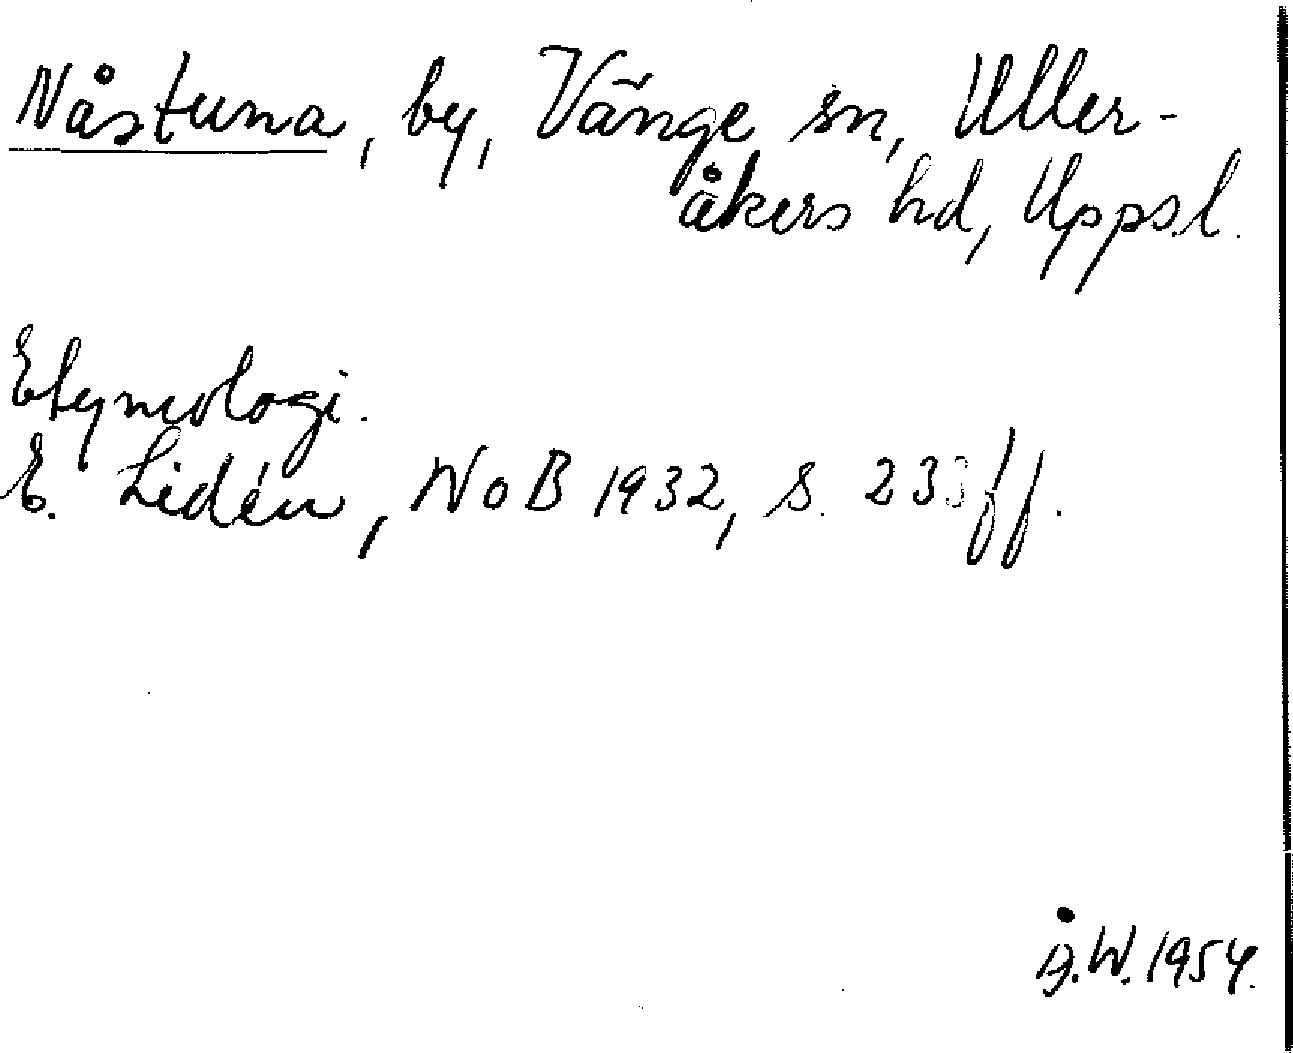 Nåstuna, by, Vänge sn, Uller-
åkers hd, Uppsl.
Etymologi.
E. Lidén, NoB 1932, s. 233 ff.
Å.W. 1954.